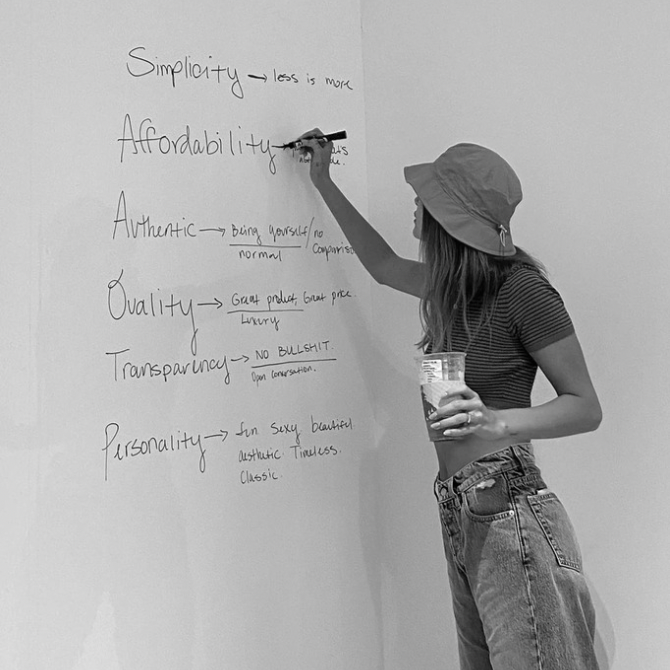 Simplicity → less is more
Affordability →
Authentic → Being yourself/no
normal
Quality → Great product, Great price.
Luxury
Transparency → NO BULLSHIT.
Open Conversation.
Personality → fun sexy beautiful
aesthetic. Timeless.
Classic.